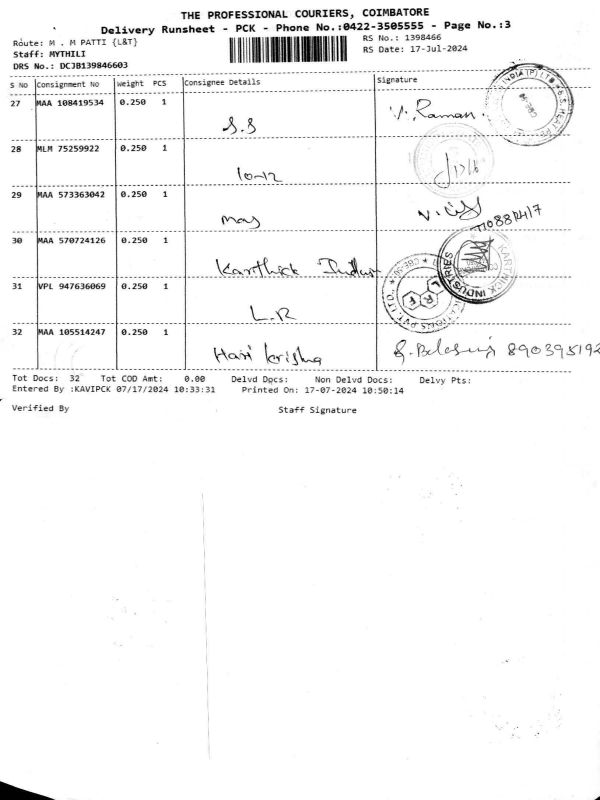 THE PROFESSIONAL COURIERS, COIMBATORE
Delivery Runsheet - PCK - Phone No.:0422-3505555 - Page No.:3
Route: M . M PATTI {L&T} RS No.: 1398466
Staff: MYTHILI RS Date: 17-Jul-2024
DRS No.: DCJB139846603
S No Consignment No Weight PCS Consignee Details Signature
27 MAA 108419534 0.250 1
S.S V. Raman.
28 MLM 75259922 0.250 1
10-12
29 MAA 573363042 0.250 1
30 MAA 570724126 0.250 1
Karthick
KARTHICK INDUSTRIES
31 VPL 947636069 0.250 1
L.R
32 MAA 105514247 0.250 1
Hari krisha
Tot Docs: 32 Tot COD Amt: 0.00 Delvd Docs: Non Delvd Docs: Delvy Pts:
Entered By :KAVIPCK 07/17/2024 10:33:31 Printed On: 17-07-2024 10:50:14
Verified By Staff Signature